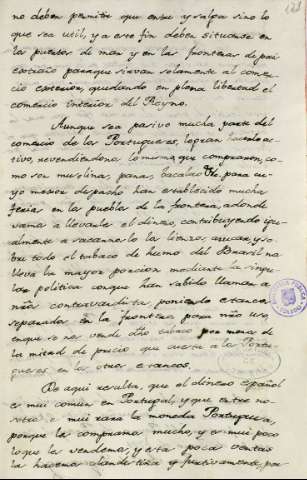 128
no deben permitir que entre y salga sino lo
que sea util, y a este fin deben situarse en
las puertos de mar y en las fronteras de pais
extraño para que sirvan solamente al comer-
cio exterior, quedando en plena libertad el
comercio interior del Reyno.
Aunque sea pasivo mucha parte del
comercio de los Portugueses, logran hacerlo ac-
tivo, revendiendonos lo mismo que compraron, co-
mo son muselinas, panas, bacalao &c, para cu-
yo menor despacho han establecido mucha
feria en los pueblos de la frontera, adonde
vamos a llevarles el dinero, contribuyendo igu-
almente a sacarnoslo los lienzos, azucar, y so-
bre todo el tabaco de humo del Brasil que nos
lleva la mayor porcion mediante la singu-
lar politica con que han sabido llamar a
contravando, poniendo estancos
separados en la frontera para uso
en que se nos vende dho tabaco por menos de
la mitad de precio que cuesta a los Portu-
gueses en los otros estancos.
De aqui resulta, que el dinero español
es mui comun en Portugal, y que entre no-
sotros es mui rara la moneda Portuguesa,
porque les compramos mucho, y es mui poco
lo que les vendemos, y esta poca ventas
la hacemos clandestina y furtivamente, por